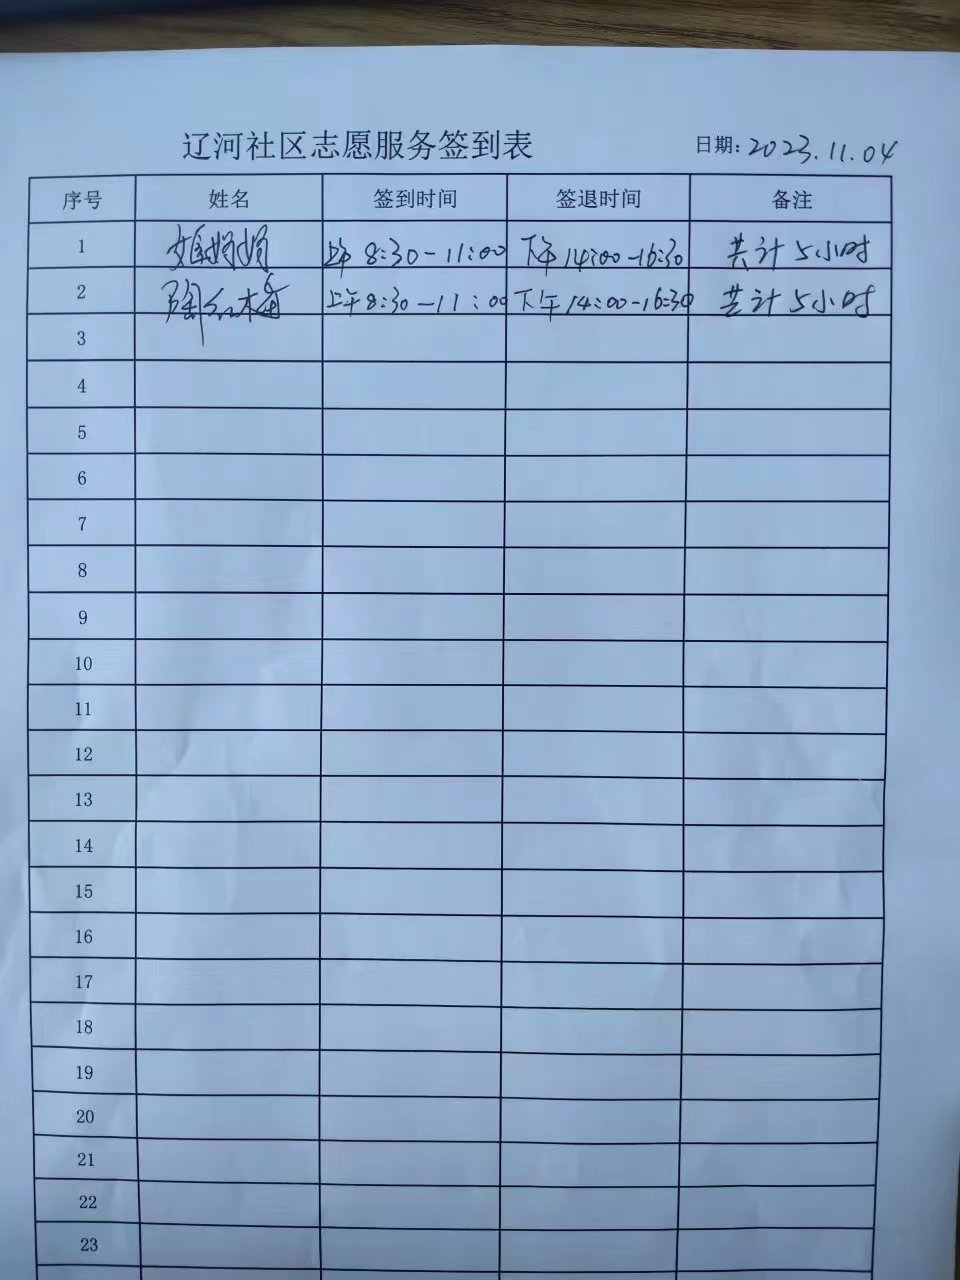 辽河社区志愿服务签到表
日期:2023.11.04
序号 姓名 签到时间 签退时间 备注
1 上午 8:30-11:00 下午 14:00-16:30 共计5小时
2 陶红梅 上午8:30-11:00 下午14:00-16:30 共计5小时
3
4
5
6
7
8
9
10
11
12
13
14
15
16
17
18
19
20
21
22
23